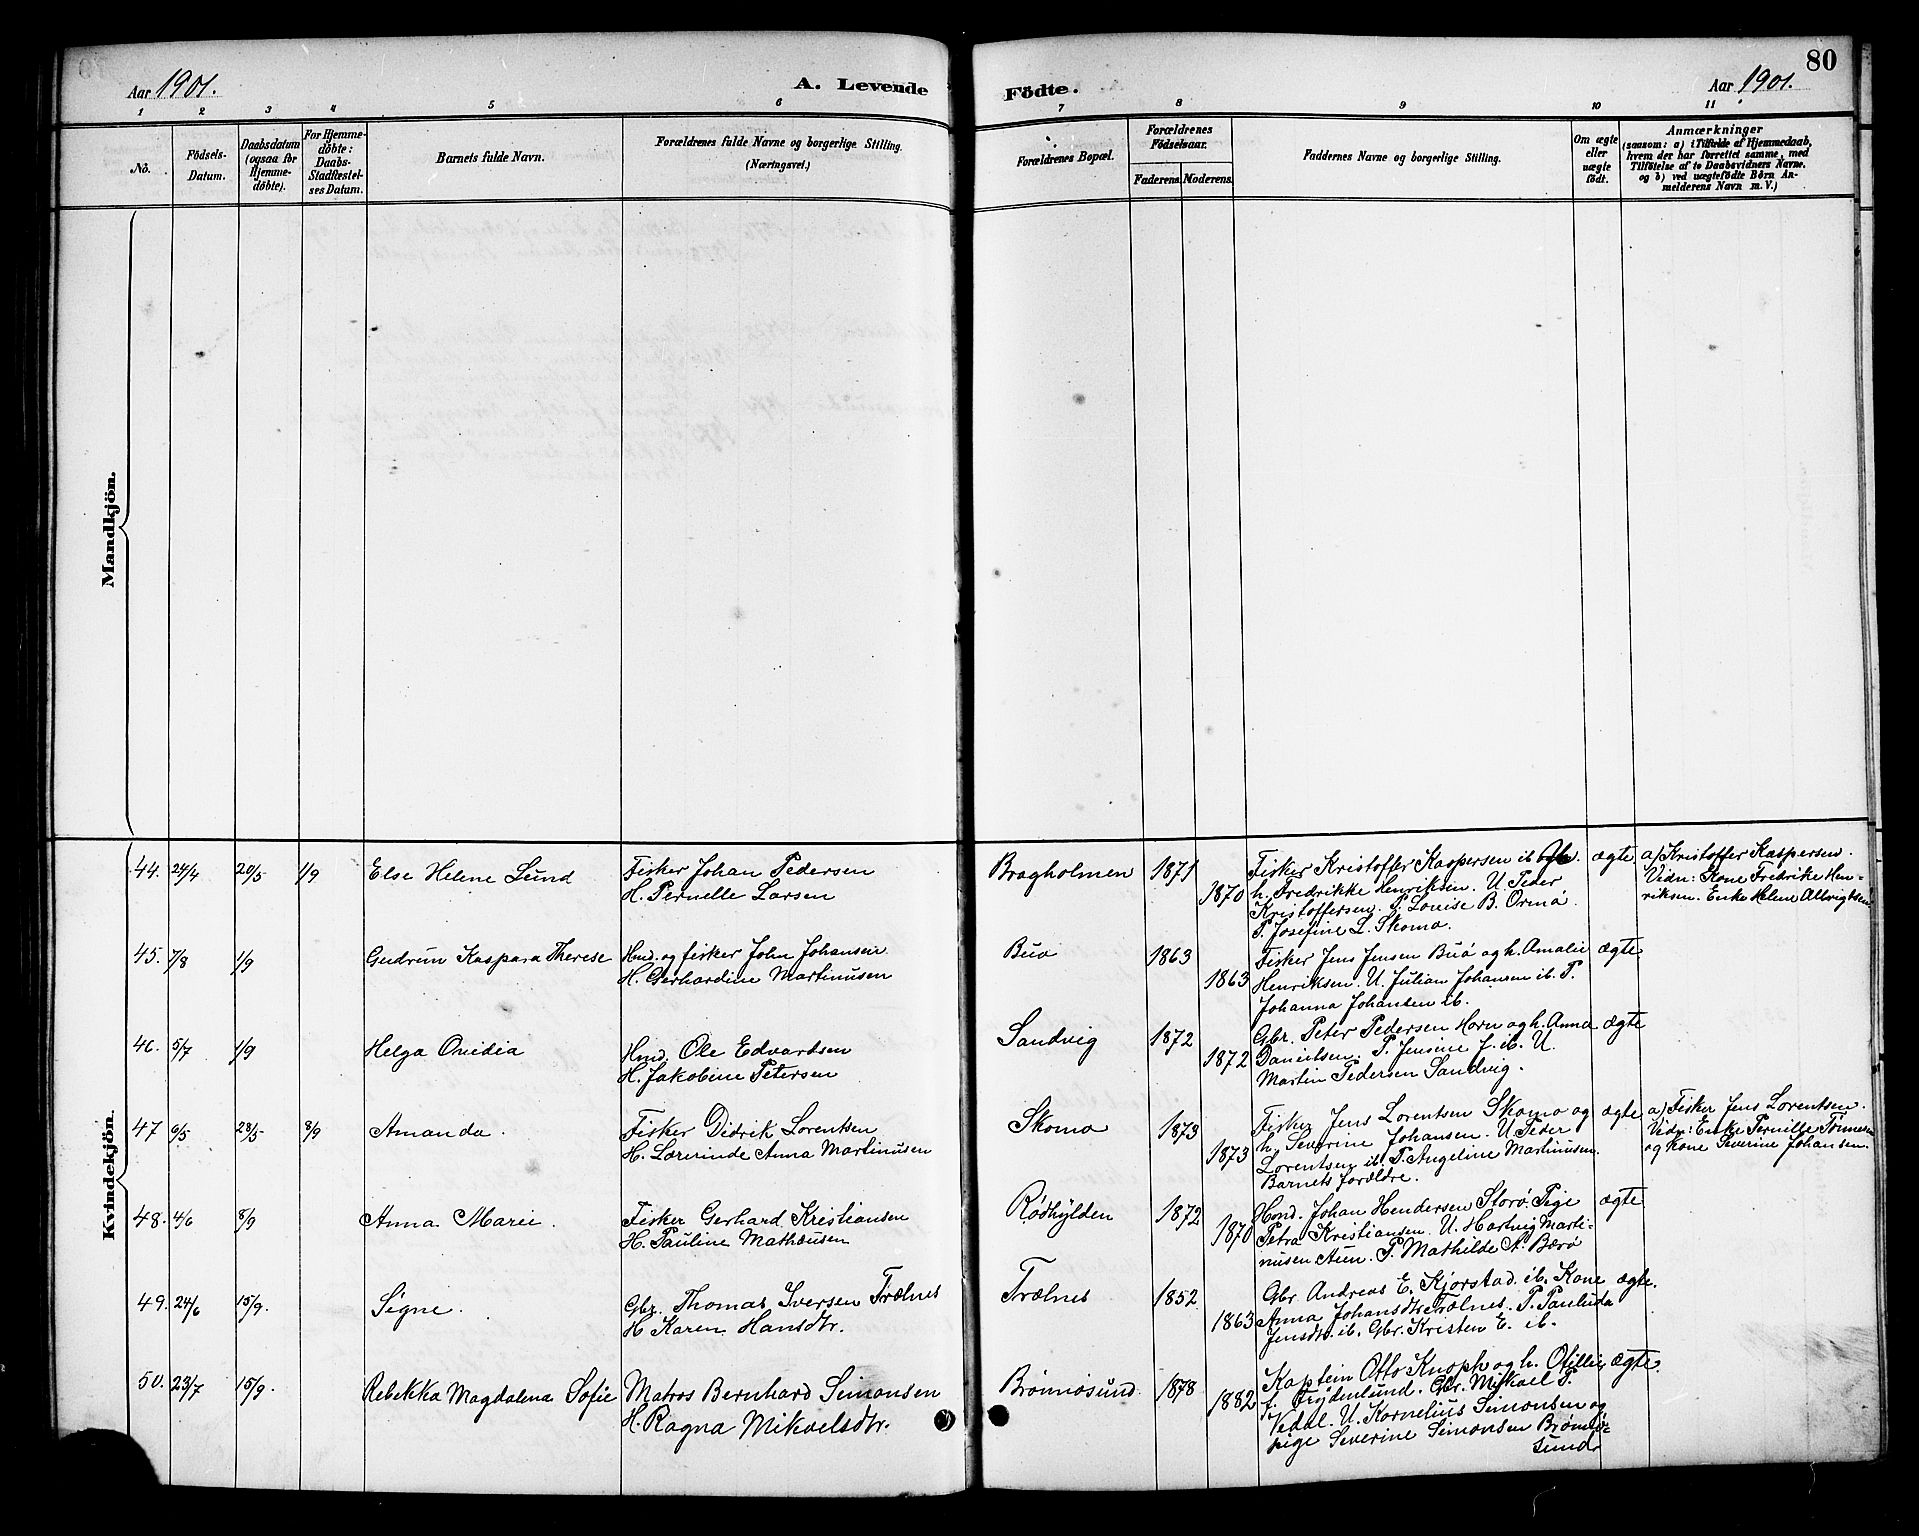 80
Aar 1901.
A. Levende Födte.
Aar 1901.
1 2 3 4 5 6 7 8 9 10 11
No.
Födsels-
Datum.
Daabsdatum
(ogsaa for
Hjemme-
döbte).
For Hjemme-
döbte:
Daabs-
Stadfæstel-
ses Datum.
Barnets fulde Navn.
Forældrenes fulde Navne og borgerlige Stilling.
(Næringsvei.)
Forældrenes Bopæl.
Forældrenes
Födselsaar.
Faderens. Moderens.
Faddernes Navne og borgerlige Stilling.
Om ægte
eller
uægte
födt.
Anmærkninger
(saasom: a) i Tilfælde af Hjemmedaab,
hvem der har forrettet samme, med
Tilföielse af to Daabsvidners Navne.
og b) ved uægtefödte Börn An-
melderens Navn m. V.)
Mandkjön.
Kvindekjön.
44. 24/4 20/5 1/9 Else Helene Lund
Fisker Johan Pedersen
H. Pernelle Larsen
Bragholmen 1871
1870
Fisker Kristoffer Kaspersen ib
h. Fredrikke Henriksen. U. Peder
Kristoffersen. P. Louise B. Ormø.
P. Josefine L. Skomo.
ægte
a) Kristoffer Kaspersen.
Vidn: Kone Fredrike Hen-
riksen. Enke Helene Albrigtsen
45. 7/8 1/9 Gudrun Kaspara Therese
Hmd. og fisker John Johansen
H. Gerhardine Martinusen
Buø 1863
1863
Fisker Jens Jensen Buø og h. Amalie
Henriksen. U. Julian Johansen ib. P.
Johanna Johansen ib.
ægte
46. 5/7 1/9 Helga Ovidia
Hmd. Ole Edvardsen
H. Jakobine Petersen
Sandvig 1872
1872
Gbr. Peter Pedersen Horn og h. Anna
Danielsen. P. Jensine J. ib. U.
Martin Pedersen Sandvig.
ægte
47 6/5 28/5 8/9 Amanda.
Fisker Didrik Lorentsen
H. Lærerinde Anna Martinusen
Skomo 1873
1873
Fisker Jens Lorentsen Skomo og
h. Severine Johansen. U. Peder
Lorentsen ib. P. Angeline Martinusen.
Barnets forældre.
ægte
a) Fisker Jens Lorentsen.
Vidn: Enke Pernille Tønnesen
og Kone Severine Johansen.
48. 4/6 8/9 Anna Marie.
Fisker Gerhard Kristiansen
H. Pauline Mathæusen
Rødhylden 1872
1870
Hmd. Johan Hendersen Storø. Pige
Petra Kristiansen. U. Hartvig Marti-
nusen Aun. P. Mathilde A. Bærø
ægte
49. 24/6 15/9. Signe.
Gbr. Thomas Iversen Trælnes
H. Karen Hansdtr.
Trælnes 1852
1863
Gbr Andreas E. Kjørstad. ib. Kone
Anna Johansdtr Trælnes. P. Paulida
Jensdtr. ib. Gbr. Kristen E. ib.
ægte.
50. 23/7 15/9. Rebekka Magdalena Sofie
Matros Bernhard Simonsen
H. Ragna Mikaelsdtr.
Brønnøsund 1878
1882
Kaptein Otto Knoph og h. Otillie
f. Frydenlund. Gbr. Mikael P.
Vedal. U. Kornelius Simonsen og
pige Severine Simonsen Brønnø-
sund
ægte.